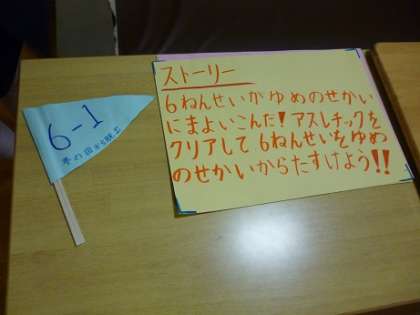 6-1
ストーリー
6ねんせいがゆめのせかい
にまよいこんだ!アスレチックを
クリアして6ねんせいをゆめ
のせかいからたすけよう!!